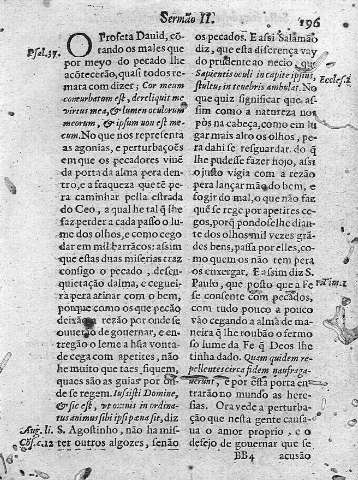 Sermão II.
196
Psal. 37.
O Profeta Dauid, cõ-
tando os males que
por meyo do pecado lhe
acõtecerão, quasi todos re-
mata com dizer; Cor meum
conturbatum est, dereliquit me
virtus mea, & lumen oculorum
meorum, & ipsum non est me-
cum. No que nos representa
as agonias, e perturbações
em que os pecadores viuẽ
da porta da alma pera den-
tro, e a fraqueza que tẽ pe-
ra caminhar pella estrada
do Ceo, a qual he tal q̃ lhe
faz perder a cada passo o lu-
me dos olhos, e como cego
dar em mil barrãcos: assim
que estas duas miserias traz
consigo o pecado, desen-
quietação dalma, e ceguei-
ra pera atinar com o bem,
porque como os que pecão
deixão a rezão por onde se
ouuerão de gouernar, e en-
tregão o leme a hũa vonta-
de cega com apetites, não
he muito que taes fiquem,
quaes são as guias por on-
de se regem. Iussisti Domine,
& sic est, vt omnis in ordina-
tus animus sibi ipsi pæna sit, diz
Aug. li.
S. Agostinho, não ha mis-
Cõf. c. 12
ter outros algozes, senão
os pecados. E assi Salamão
diz, que esta diferença vay
do prudente ao necio, que
Sapientis oculi in capite ipsius,
stultus in tenebris ambulat. No
Eccles. 2
que quiz significar que as-
sim como a natureza nos
pós na cabeça, como em lu
gar mais alto os olhos, pe-
ra dahi se resguardar do q̃
lhe pudesse fazer nojo, assi
o justo vigia com a rezão
pera lançar mão do bem, e
fogir do mal, o que não faz
que se rege por apetites ce-
gos, porq̃ pondoselhe dian-
te dos olhos mil vezes grã-
des bens, passa por elles, co-
mo quem os não tem pera
os enxergar. E assim diz S.
Paulo, que posto que a Fe
se consente com pecados,
com tudo pouco a pouco
vão cegando a alma de ma-
neira q̃ lhe roubão o fermo
so lume da Fe q̃ Deos lhe
tinha dado. Quam quidem re-
pellentes circa fidem naufraga-
uerunt, e por esta porta en-
trarão no mundo as here-
sias. Ora vede a perturba-
ção que nesta gente causa-
ua o amor proprio, e o
desejo de gouernar que se
BB4
acusão